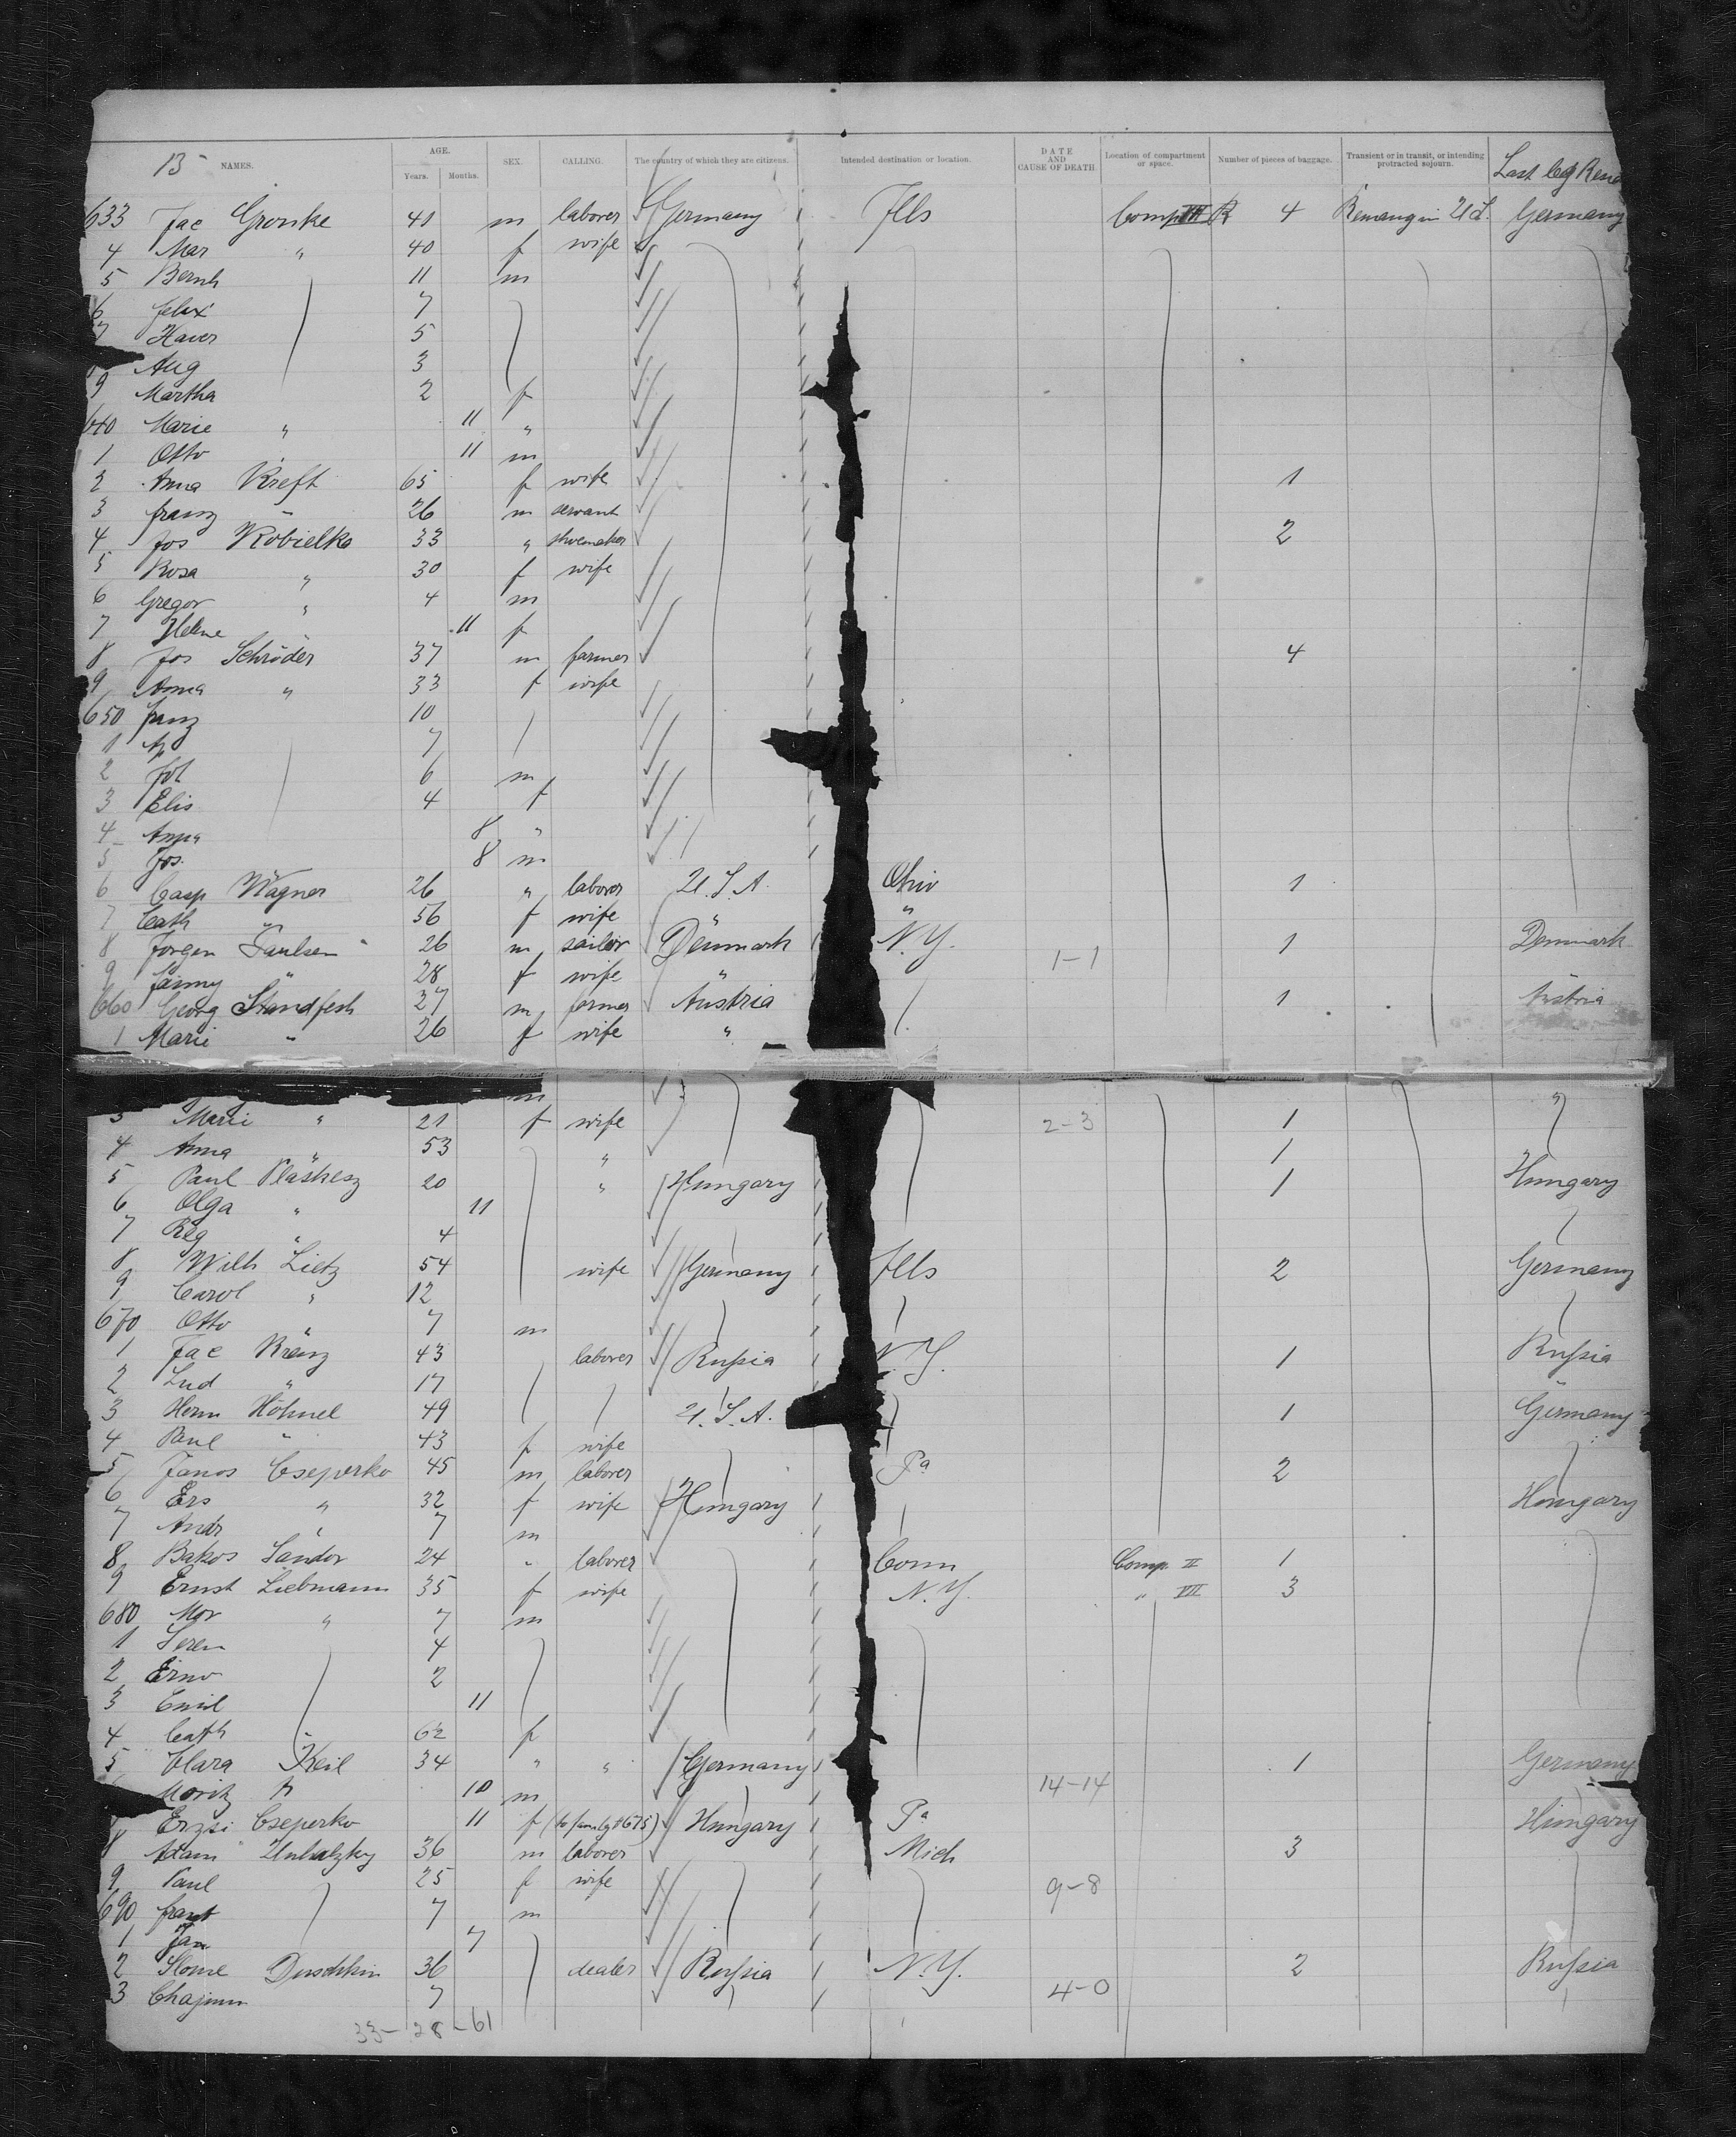 13
NAMES. AGE. Years. Months. SEX. CALLING. The country of which they are citizens. Intended destination or location. DATE AND CAUSE OF DEATH Location of compartment or space. Number of pieces of baggage. Transient or in transit, or intending protracted sojourn. Last leg Resid
633 Jac Gronke 41 m laborer Germany Ills Comp VII R 4 Remang in U.S. Germany
4 Mar " 40 f wife
5 Bernh 11 m
6 Felix 7
7 Xaver 5
Aug 3
9 Martha 2 f
640 Marie " 11 "
1 Otto 11 m
2 Anna Kreft 65 f wife 1
3 Franz " 26 m servant
4 Jos Kobielke 33 " shoemaker 2
5 Rosa " 30 f wife
6 Gregor " 4 m
7 Helene 11 f
8 Jos Schröder 37 m farmer 4
9 Anna " 33 f wife
650 Franz 10
1 7
2 6 m
3 Elis 4 f
4 Anna 8 "
5 Jos. 8 m
6 Casp Wagner 26 " laborer U.S.A. Ohio 1
7 Cath " 56 f wife " "
8 Jorgen Paulsen 26 m sailor Denmark N.Y. 1 Denmark
9 Fanny " 28 f wife " 1-1
660 Georg Standfest 27 m farmer Austria 1 Austria
1 Marie " 26 f wife "
m
3 Marie " 21 f wife 2-3 1 "
4 Anna " 53 " 1
5 Paul Plaskesz 20 " Hungary 1 Hungary
6 Olga " 11
7 Reg " 4
8 Wilh Lietz 54 wife Germany Ills 2 Germany
9 Carol " 12
670 Otto " 7 m
1 Jac Kranz 43 laborer Russia N.Y. 1 Russia
2 Lud " 17
3 Herm Höhnel 49 U.S.A. 1 Germany
4 Paul " 43 f wife
5 Janos Cseperko 45 m laborer Pa 2
6 Ers " 32 f wife Hungary Hungary
7 Andr " 7 m
8 Bakos Sandor 24 " laborer Conn Comp. II 1
9 Ernst Liebmann 35 f wife N.Y. " VII 3
680 Mor " 7 m
1 Seren 4
2 Erno 2
3 Emil 11
4 Cath " 62 f
5 Clara Keil 34 " " Germany 1 Germany
Moritz " 10 m 14-14
Erzsi Cseperko 11 f (to family #675) Hungary Pa Hungary
8 Adam 36 m laborer Mich 3
9 Paul 25 f wife 9-8
690 Frant 7 m
1 Jan 7
2 Slome Duschkin 36 dealer Russia N.Y. 2 Russia
3 Chajmm 7 4-0
33-28-61